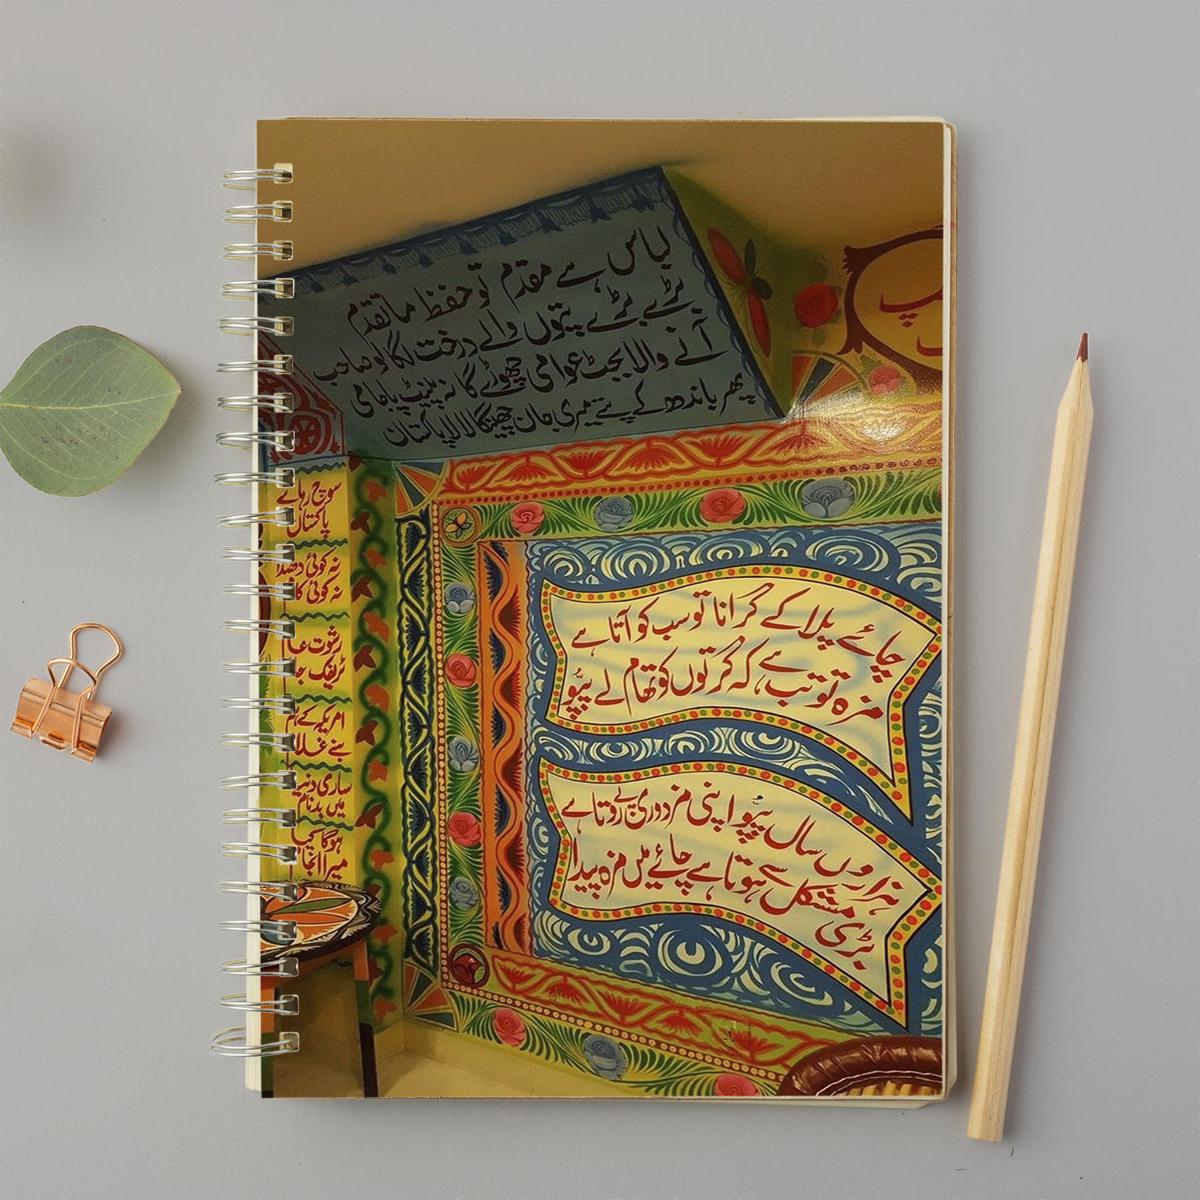 لباس سے مقدم تو حفظ ماتقدم
بڑے بڑے پتوں والے درخت لگاو صاحب
آنے والا بجٹ عوامی چھوڑے گا نہ پینٹ پاجامی
پھر باندھ کے پتے میری جان جھینگالالا پاکستان
سوچ رہا ہے
پاکستان
نہ کوئی دھندا
نہ کوئی کا
رشوت عام
ٹریفک جا
امریکہ کے ہم
بنے غلا
ساری دنیا
میں بدنام
ہوگا کیا
میرا انجا
چائے پلا کے گرانا تو سب کو آتا ہے
مزہ تو تب ہے کہ گرتوں کو تھام لے پپو
ہزاروں سال پپو اپنی مزدوری پے روتا ہے
بڑی مشکل سے ہوتا ہے چائے میں مزہ پیدا